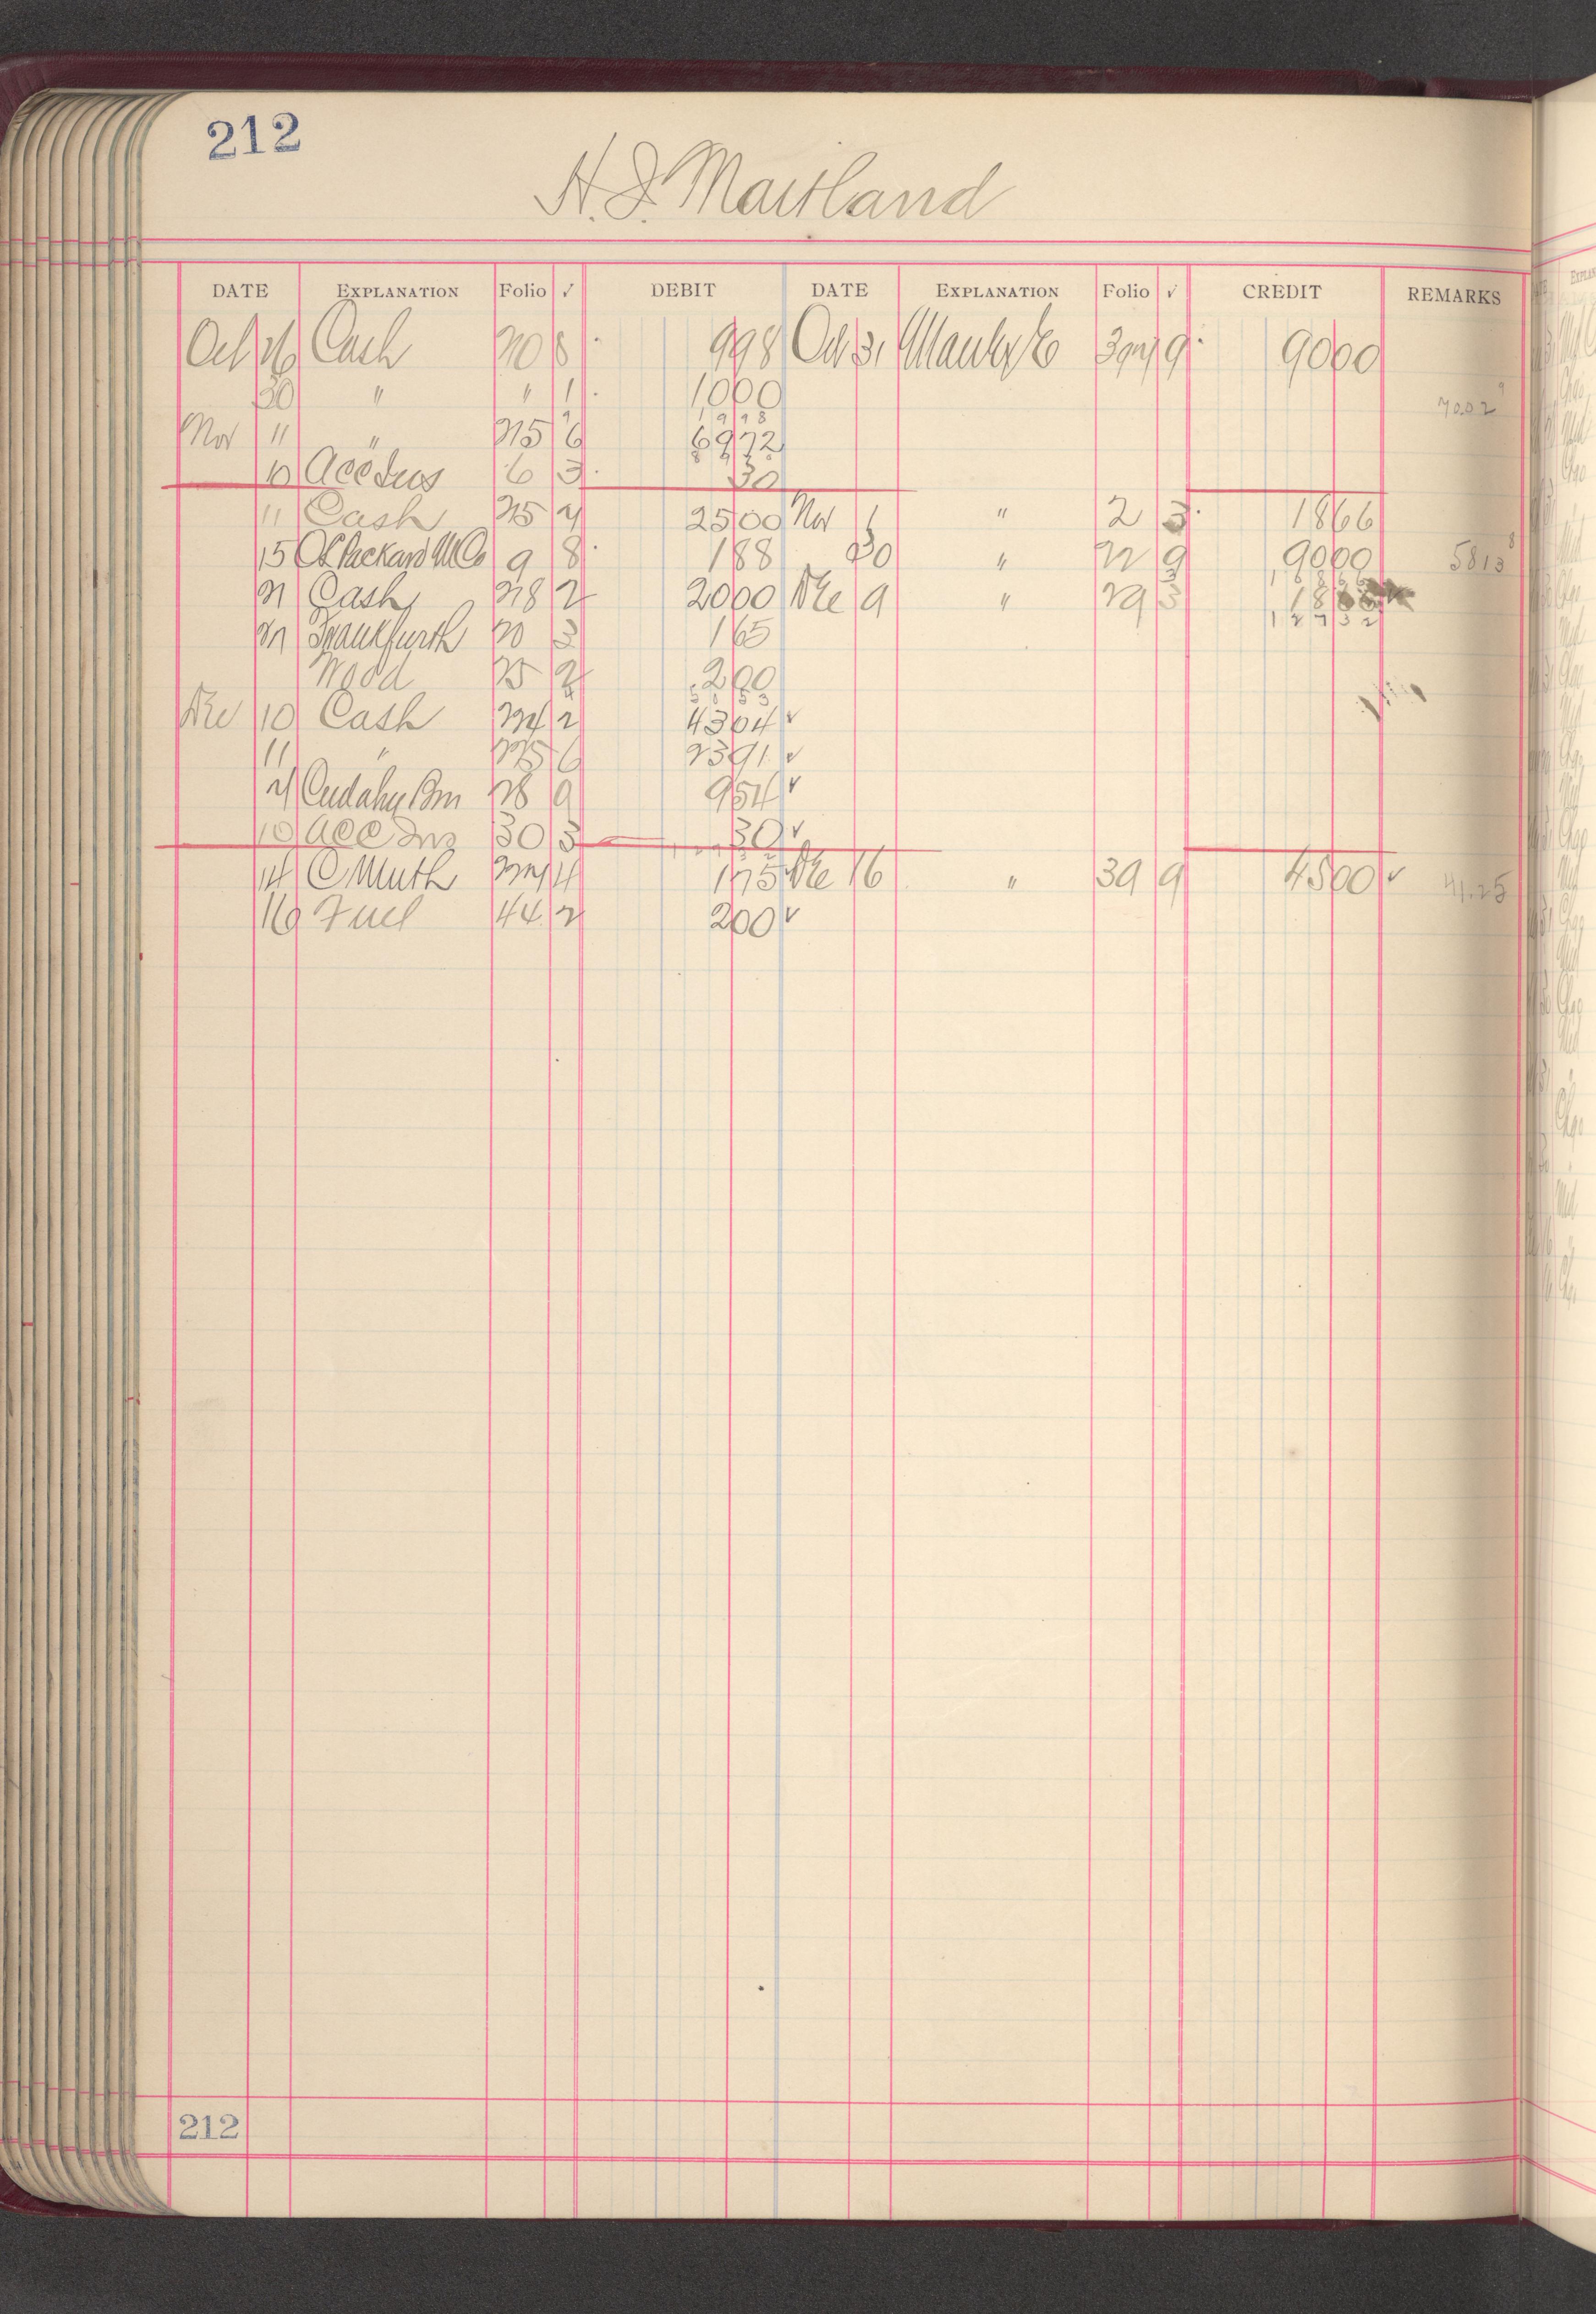 212
H. J. Maitland
DATE EXPLANATION Folio √ DEBIT DATE EXPLANATION Folio √ CREDIT REMARKS
Oct 26 Cash 20 8 998 Oct 31 9 9000
30 " " 1 1000 7002
1998
Nov 11 " 215 6 6972
10 Acc Ins 6 3 30
11 Cash 25 2500 Nov 1 " 2 3 1866
15 9 8 188 30 " 22 9 9000 5813
21 Cash 28 2 2000 Dec 9 " 29 3
12732
Frankfurth 20 3 165
Wood 25 2 200
Dec 10 Cash 2 4304 √
11 " 6 2391 √
21 Cudahy Bros 28 9 954 √
10 Acc Ins 30 3 30 √
14 C Muth 4 175 Dec 16 " 39 9 4500 √ 4125
16 Fuel 44 2 200 √
212